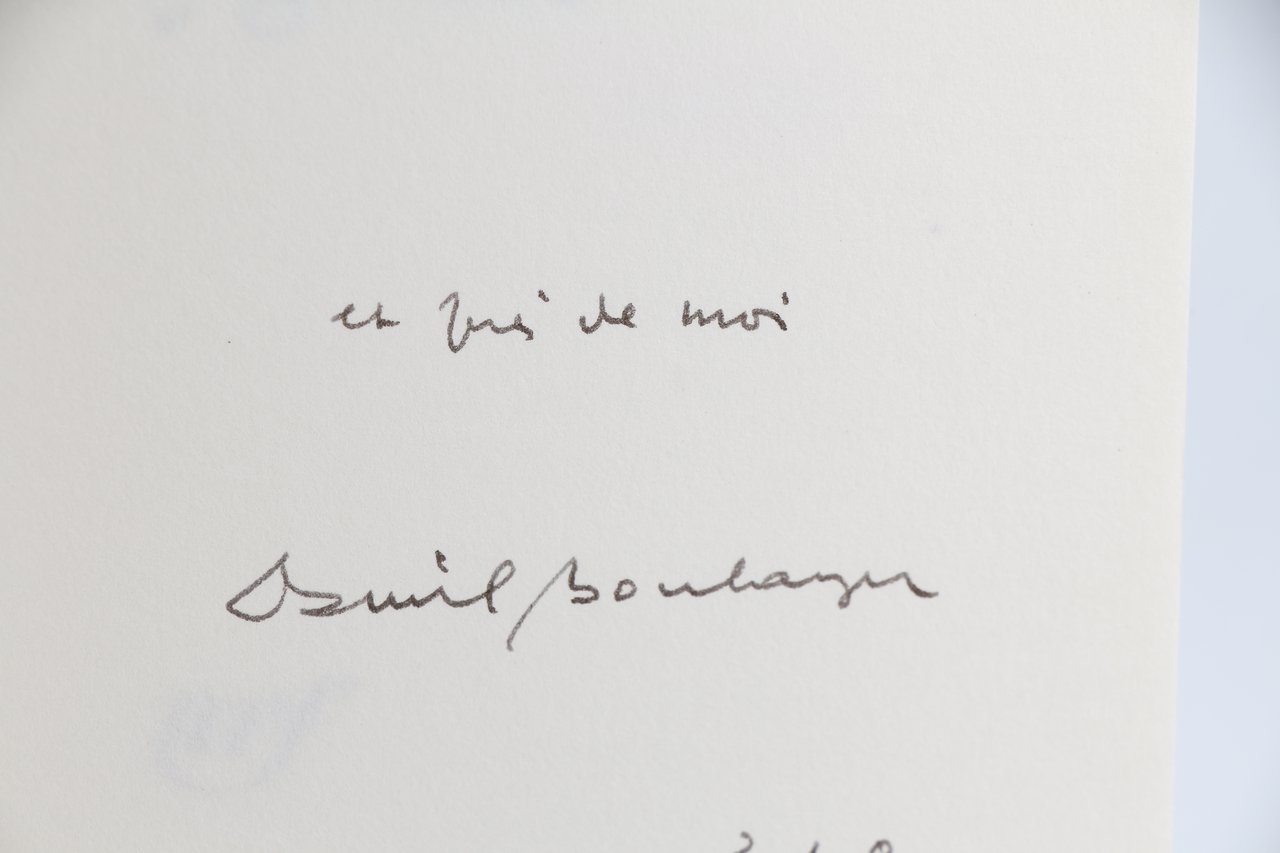 et près de moi
Daniel Boulanger